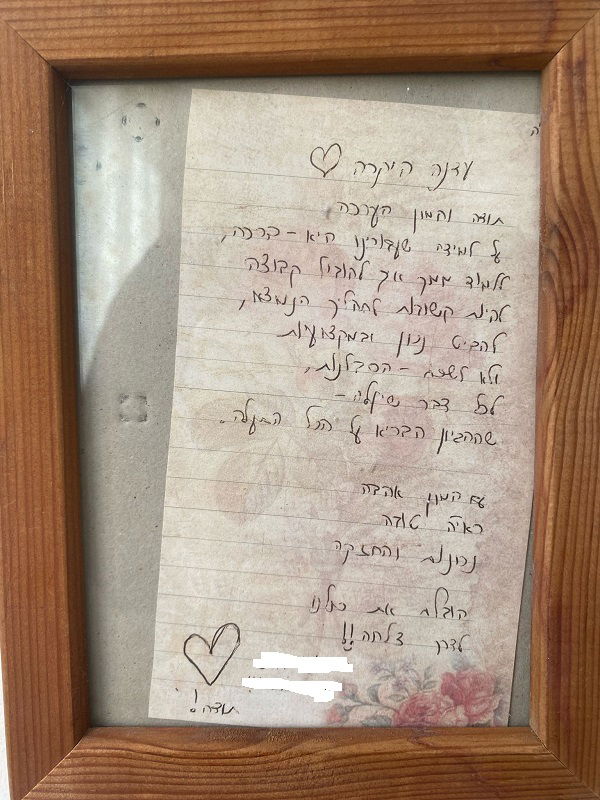 עדנה היקרה
תודה והמון הערכה
על למידה שעבורינו היא - ברכה,
ללמוד ממך איך להוביל קבוצה
להיות קשורות לתהליך הנמצא,
להביט נכון ובמקצועיות
ולא לשכוח - הסבלנות,
לכל דבר -
שההגיון הבריא על הכל התעלה.
עם המון אהבה
ראיה טובה
נכונות והחזקה
הובלת את כולנו
לדרך צלחה!!
תודה!